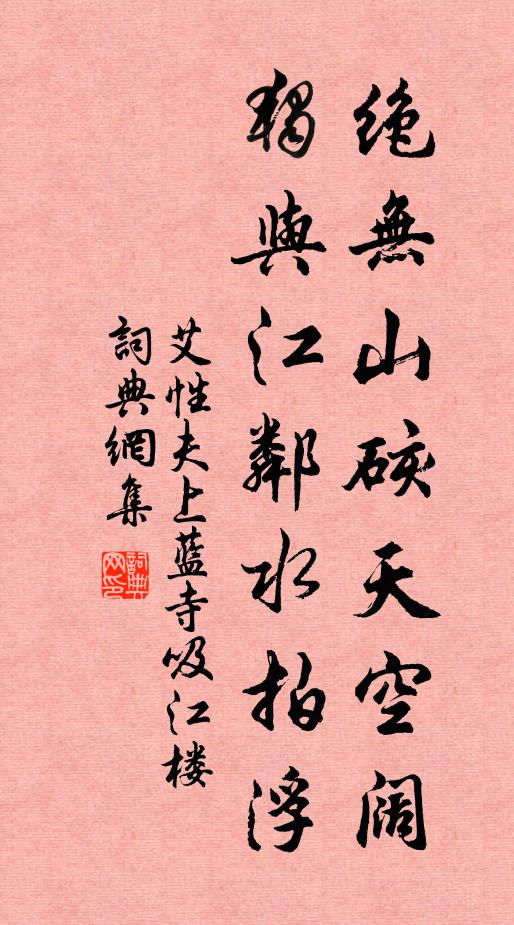 絶無山礙天空闊
獨與江鄰水拍浮
艾性夫上藍寺吸江楼
詞典網集
詞典网印